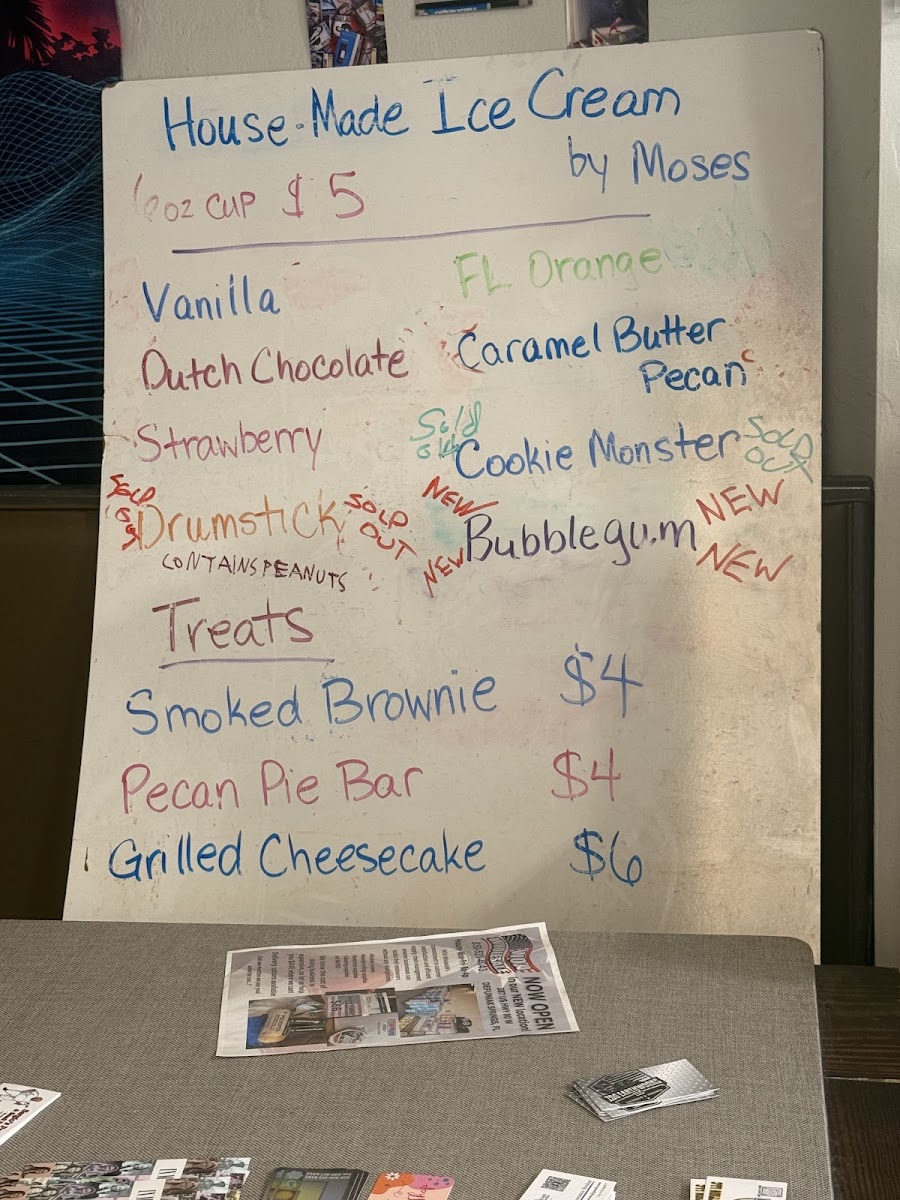 House-Made Ice Cream
by Moses
6oz CUP $5
Vanilla
Dutch Chocolate
Strawberry
SOLD OUT Drumstick SOLD OUT
CONTAINS PEANUTS
FL. Orange
Caramel Butter
Pecan
Sold Out Cookie Monster SOLD OUT
NEW NEW
Bubblegum
NEW NEW
Treats
Smoked Brownie $4
Pecan Pie Bar $4
Grilled Cheesecake $6
NOW OPEN
in our NEW location!
DEFUNIAK SPRINGS, FL